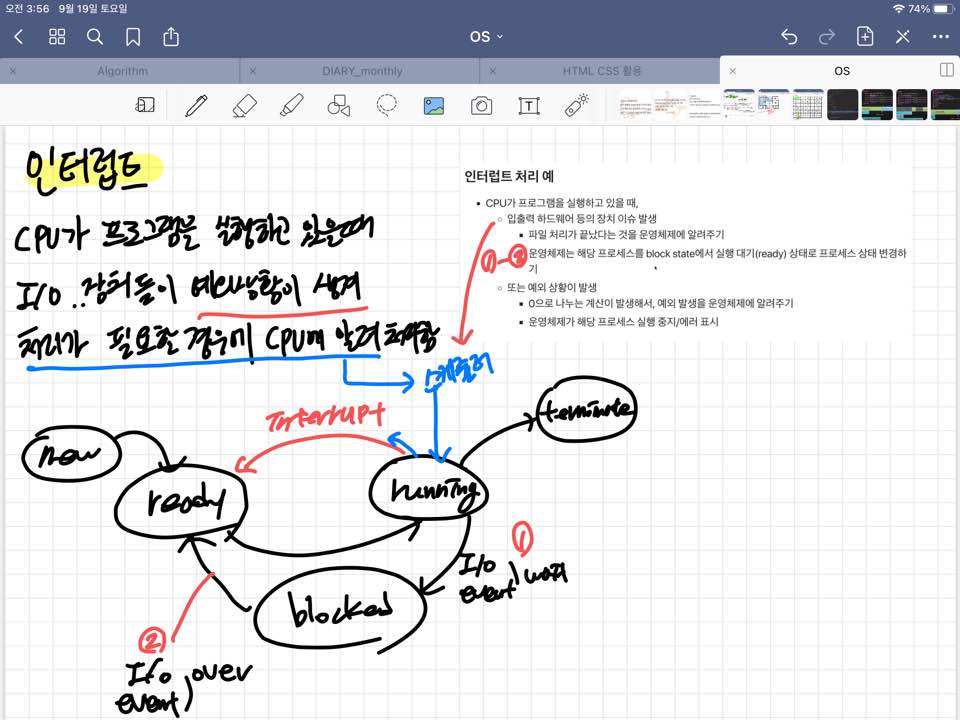 오전 3:56 9월 19일 토요일
74%
OS
Algorithm
DIARY_monthly
HTML CSS 활용
OS
인터럽트
CPU가 프로그램을 실행하고 있을때
I/O .. 장치들이 예외상황이 생겨
처리가 필요할 경우에 CPU에 알려 처리함
인터럽트 처리 예
CPU가 프로그램을 실행하고 있을 때,
입출력 하드웨어 등의 장치 이슈 발생
파일 처리가 끝났다는 것을 운영체제에 알려주기
①-② 운영체제는 해당 프로세스를 block state에서 실행 대기(ready) 상태로 프로세스 상태 변경하
기
또는 예외 상황이 발생
0으로 나누는 계산이 발생해서, 예외 발생을 운영체제에 알려주기
운영체제가 해당 프로세스 실행 중지/에러 표시
스케줄러
Interrupt
terminate
new
ready
running
①
I/O
event) wait
blocked
②
I/O
event) over